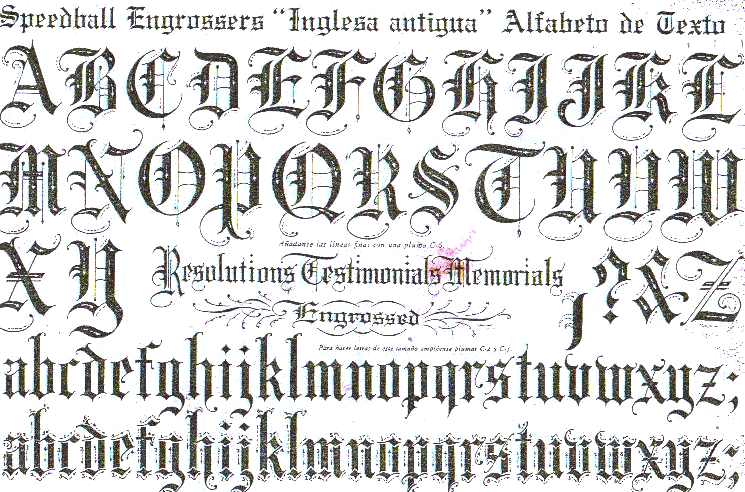 Speedball Engrossers "Inglesa antigua" Alfabeto de Texto
A B C D E F G H I J J K L
M N O P Q R S T U V W
Añadanse las líneas finas con una pluma C-5.
X Y Resolutions Testimonials Memorials , ? & Z
Engrossed
Para hacer letras de este tamaño empléense plumas C-2 y C-5
abcdefghijklmnopqrstuvwxyz;
abcdefghijklmnopqrstuvwxyz;